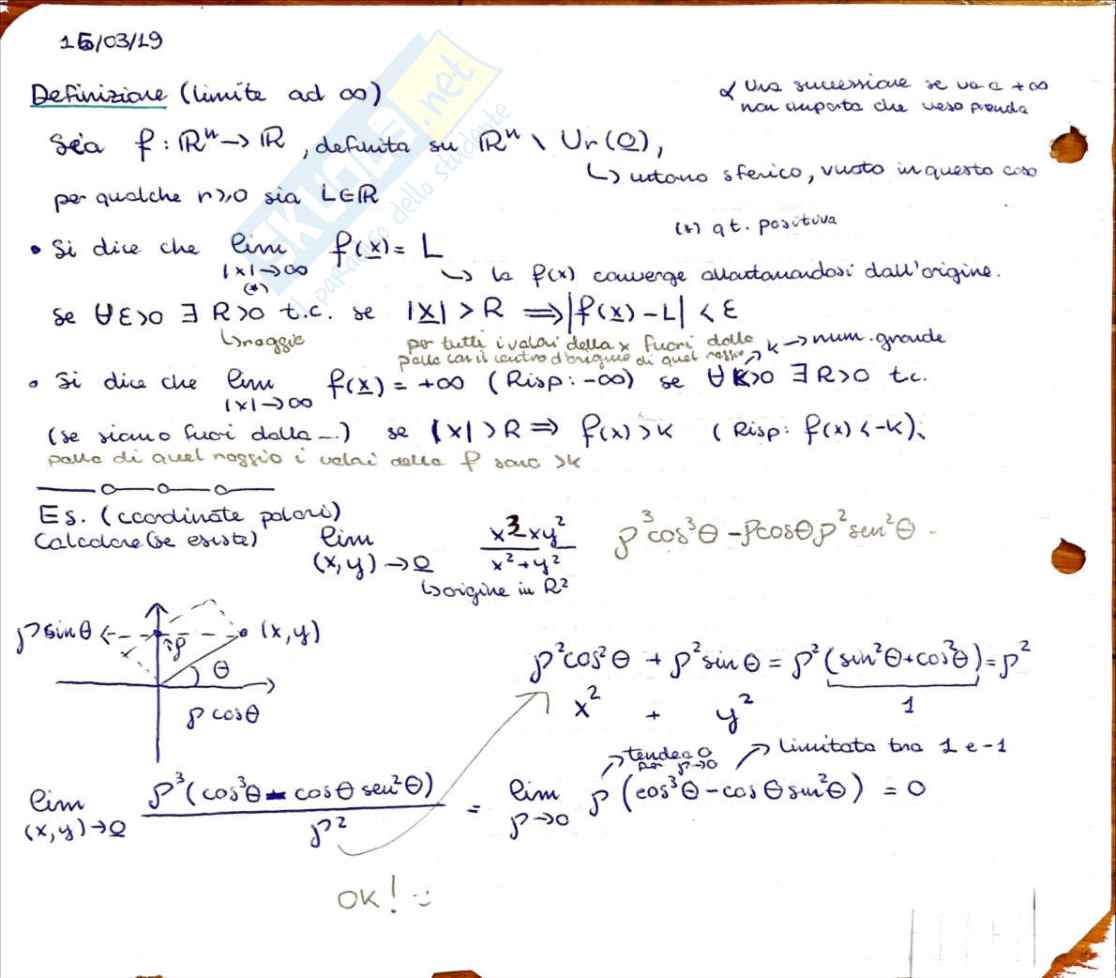 15/03/19
Definizione (limite ad ∞)
∠ Una successione se va a +∞
non importa che verso prenda
Sia f : ℝⁿ → ℝ, definita su ℝⁿ \ Ur(0),
↳ intorno sferico, vuoto in questo caso
per qualche r>0 sia L∈ℝ
(*) qt. positiva
• Si dice che lim f(x) = L
|x|→∞
(*)
↳ la f(x) converge allontanandosi dall'origine.
se ∀ε>0 ∃ R>0 t.c. se |x| > R ⟹ |f(x) - L| < ε
↳ raggio
per tutti i valori della x fuori dalla
palla con il centro d'origine di quel raggio
↗ k → num. grande
• Si dice che lim f(x) = +∞ (Risp: -∞) se ∀ K>0 ∃ R>0 t.c.
|x|→∞
(se siamo fuori dalla ...) se |x| > R ⟹ f(x) > k (Risp: f(x) < -k).
palla di quel raggio i valori della f sono >k
Es. (coordinate polari)
Calcolare (se esiste) lim x³-xy² / x²+y²
(x,y)→0
↳ origine in ℝ²
ρ³cos³θ - ρcosθρ²sen²θ -
ρ sinθ ← (x,y)
ρ
θ
ρ cosθ
ρ²cos²θ + ρ²sinθ = ρ²(sin²θ+cos²θ) = ρ²
x² + y² 1
↗ tende a 0
per ρ→0
↗ limitata tra 1 e -1
lim ρ³(cos³θ - cosθ sen²θ) / ρ² = lim ρ (cos³θ - cosθ sin²θ) = 0
(x,y)→0 ρ→0
OK! :)
SKUOLA.net
il paradiso dello studente